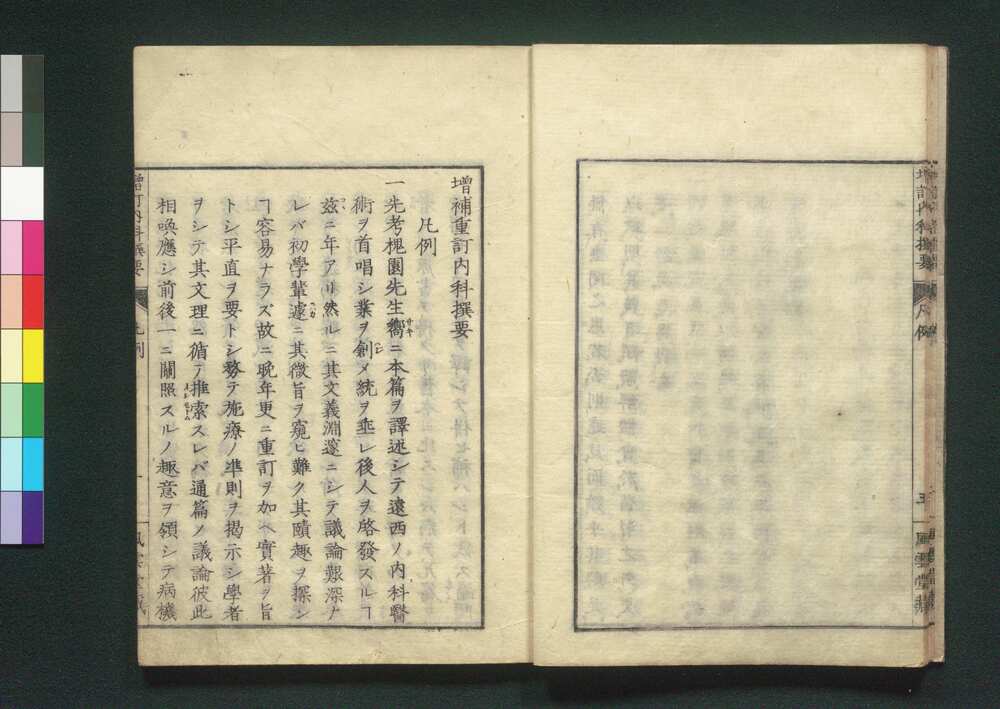 增補重訂内科撰要
凡例
一先考槐園先生嚮ニ本篇ヲ譯述シテ遠西ノ内科醫
術ヲ首唱シ業ヲ創メ統ヲ垂レ後人ヲ啓發スルヿ
玆ニ年アリ然ルニ其文義淵邃ニシテ議論艱深ナ
レバ初學輩遽ニ其微旨ヲ窺ヒ難ク其賾趣ヲ探シ
ヿ容易ナラズ故ニ晩年更ニ重訂ヲ加ヘ實著ヲ旨
トシ平直ヲ要トシ務テ施療ノ準則ヲ揭示シ學者
ヲシテ其文理ニ循テ推索スレバ通篇ノ議論彼此
相喚應シ前後一ニ關照スルノ趣意ヲ領シテ病機
增訂内科撰要
凡例
一